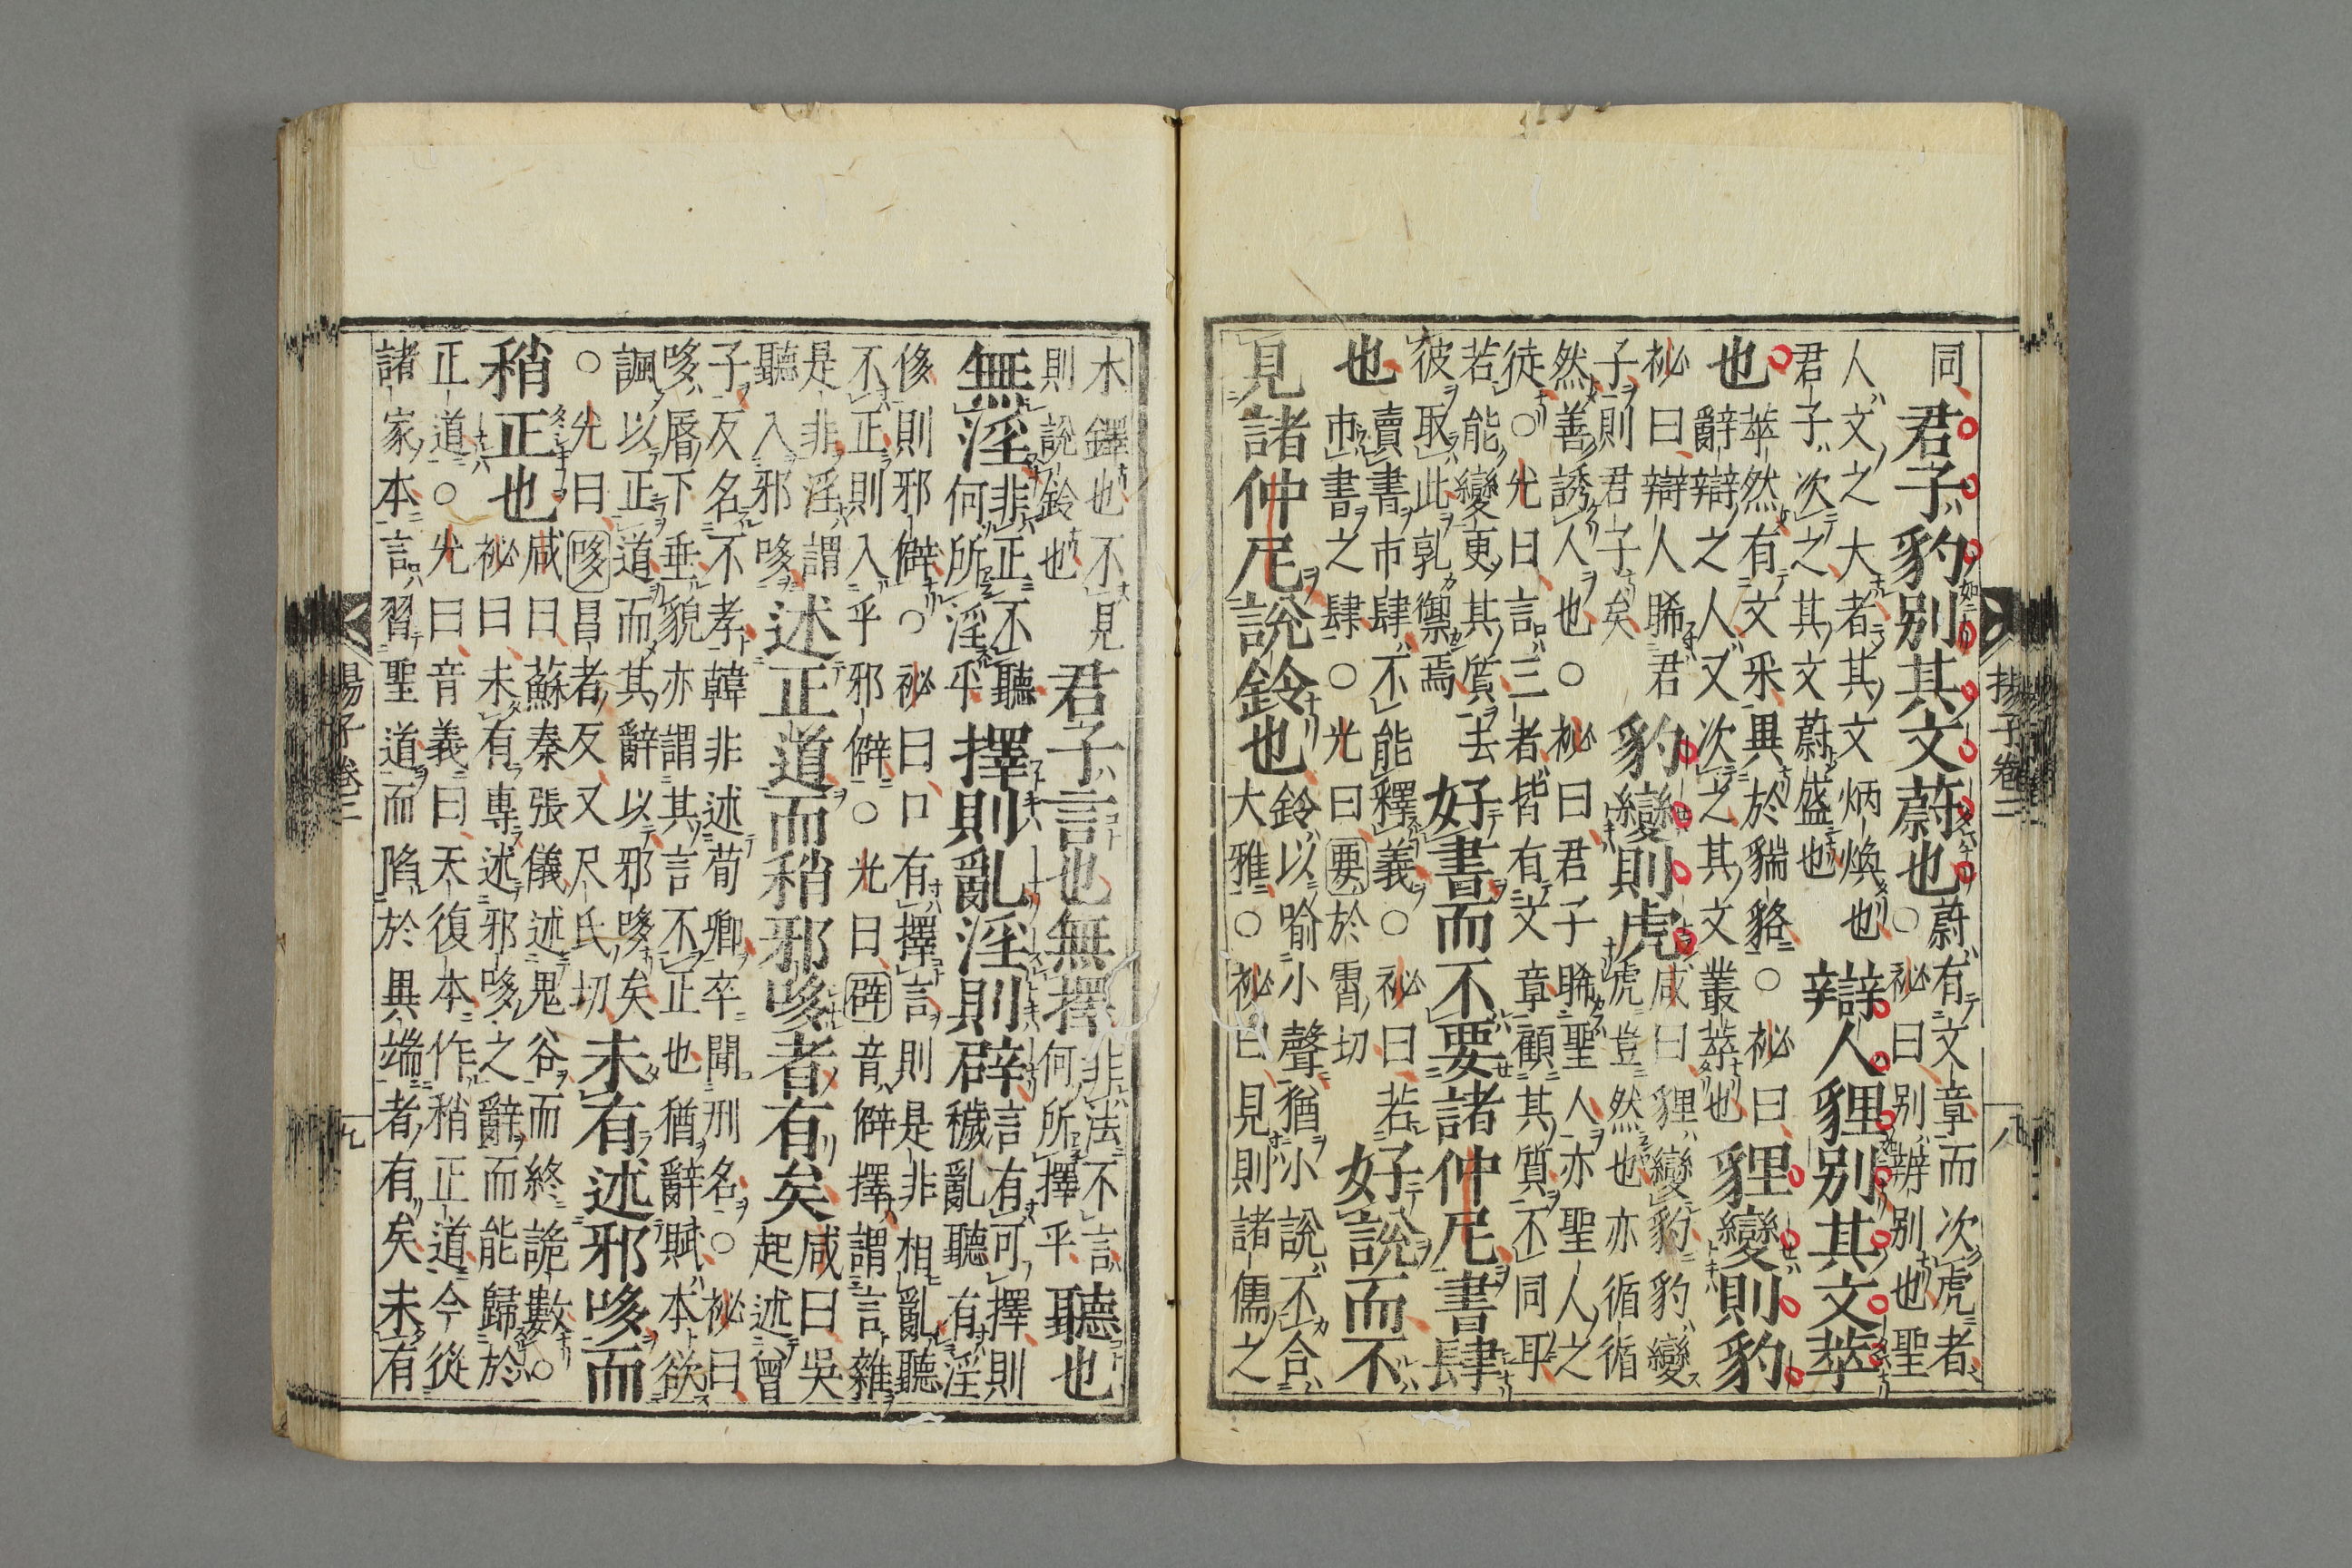 揚子卷二
八
同
君子豹別其文蔚也
蔚有文章而次虎者
○祕曰別辨別也聖
人文之大者其文炳煥也
君子次之其文蔚盛也
辯人貍別其文萃
也
萃然有文采異於貒貉○祕曰
辭辯之人又次之其文叢萃也
貍變則豹
祕曰辯人睎君
子則君子矣
豹變則虎
咸曰貍變豹豹變
虎豈然也亦循循
然善誘人也○祕曰君子睎聖人亦聖人之
徒○光曰言三者皆有文章顧其質不同耳
若能變更其質去
彼取此孰禦焉
好書而不要諸仲尼書肆
也
賣書市肆不能釋義○祕曰若
市書之肆○光曰要於霄切
好說而不
見諸仲尼說鈴也
鈴以喻小聲猶小說不合
大雅○祕曰見則諸儒之
木鐸也不見
則說鈴也
君子言也無擇
非法不言
何所擇乎
聽也
無淫
非正不聽
何所淫乎
擇則亂淫則辟
言有可擇則
穢亂聽有淫
侈則邪僻○祕曰口有擇言則是非相亂聽
不正則入乎邪僻○光曰辟音僻擇謂言雜
是非淫謂
聽入邪哆
述正道而稍邪哆者有矣
咸曰吳
起述曾
子反名不孝韓非述荀卿卒聞刑名○祕曰
哆脣下垂貌亦謂其言不正也猶辭賦本欲
諷以正道而其辭以邪哆矣
○光曰哆昌者反又尺氏切
未有述邪哆而
稍正也
咸曰蘇秦張儀述鬼谷而終詭數○
祕曰未有專述邪哆之辭而能歸於
正道○光曰音義曰天復本作稍正道今從
諸家本言習聖道而陷於異端者有矣未有
揚子卷二
九